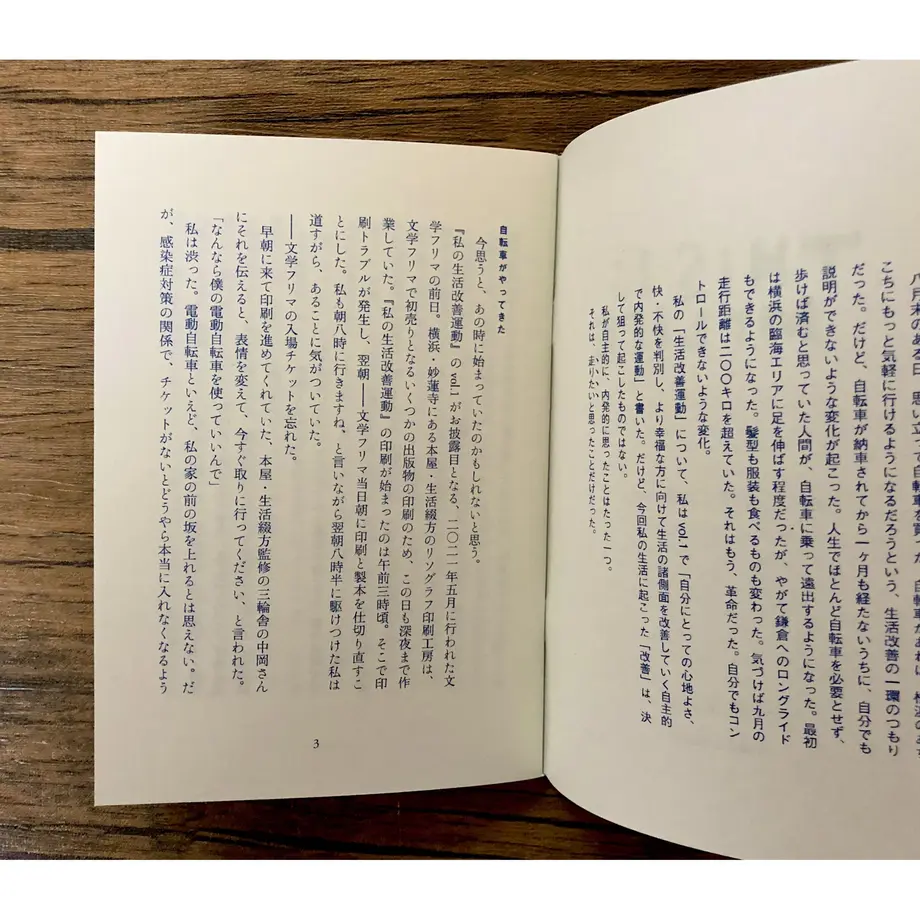 八月末のある日、思い立って自転車を買った。自転車があれば、横浜のあち
こちにもっと気軽に行けるようになるだろうという、生活改善の一環のつもり
だった。だけど、自転車が納車されてから一ヶ月も経たないうちに、自分でも
説明ができないような変化が起こった。人生でほとんど自転車を必要とせず、
歩けば済むと思っていた人間が、自転車に乗って遠出するようになった。最初
は横浜の臨海エリアに足を伸ばす程度だったが、やがて鎌倉へのロングライド
もできるようになった。髪型も服装も食べるものも変わった。気づけば九月の
走行距離は二〇〇キロを超えていた。それはもう、革命だった。自分でもコン
トロールできないような変化。
私の「生活改善運動」について、私はvol.1で「自分にとっての心地よさ、
快・不快を判別し、より幸福な方に向けて生活の諸側面を改善していく自主的
で内発的な運動」と書いた。だけど、今回私の生活に起こった「改善」は、決
して狙って起こしたものではない。
私が自主的に、内発的に思ったことはたった一つ。
それは、走りたいと思ったことだけだった。
自転車がやってきた
今思うと、あの時に始まっていたのかもしれないと思う。
『私の生活改善運動』のvol.1がお披露目となる、二〇二一年五月に行われた文
学フリマの前日。横浜、妙蓮寺にある本屋・生活綴方のリソグラフ印刷工房は、
文学フリマで初売りとなるいくつかの出版物の印刷のため、この日も深夜まで作
業していた。『私の生活改善運動』の印刷が始まったのは午前三時頃。そこで印
刷トラブルが発生し、翌朝――文学フリマ当日朝に印刷と製本を仕切り直すこ
とにした。私も朝八時に行きますね、と言いながら翌朝八時半に駆けつけた私は
道すがら、あることに気がついていた。
――文学フリマの入場チケットを忘れた。
早朝に来て印刷を進めてくれていた、本屋・生活綴方監修の三輪舎の中岡さん
にそれを伝えると、表情を変えて、今すぐ取りに行ってください、と言われた。
「なんなら僕の電動自転車を使っていいんで」
私は渋った。電動自転車といえど、私の家の前の坂を上れるとは思えない。だ
が、感染症対策の関係で、チケットがないとどうやら本当に入れなくなるよう
3